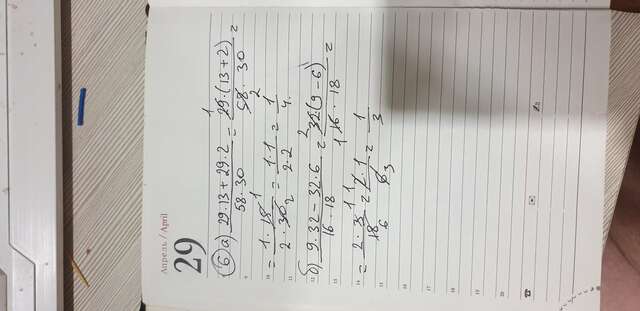 Апрель / April
29
6 а) (29·13 + 29·2)/(58·30) = (29·(13+2))/(58·30) =
1
2
= (1·15)/(2·30) = (1·1)/(2·2) = 1/4.
1
2
б) (9·32 − 32·6)/(16·18) = (32(9−6))/(16·18) =
2
1
= (2·3)/18 = (2·1)/6 = 1/3
1
6
1
3
9
10
11
12
14
15
16
17
18
19
20